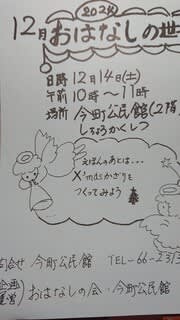 2024
12月 おはなしの世
日時 12月14日(土)
午前 10時〜11時
場所 今町公民館(2階
しちょうかくしつ
えほんのあとは...
X'masかざりを
つくってみよう
合せ 今町公民館 TEL-66-
おはなしの会・今町公民館